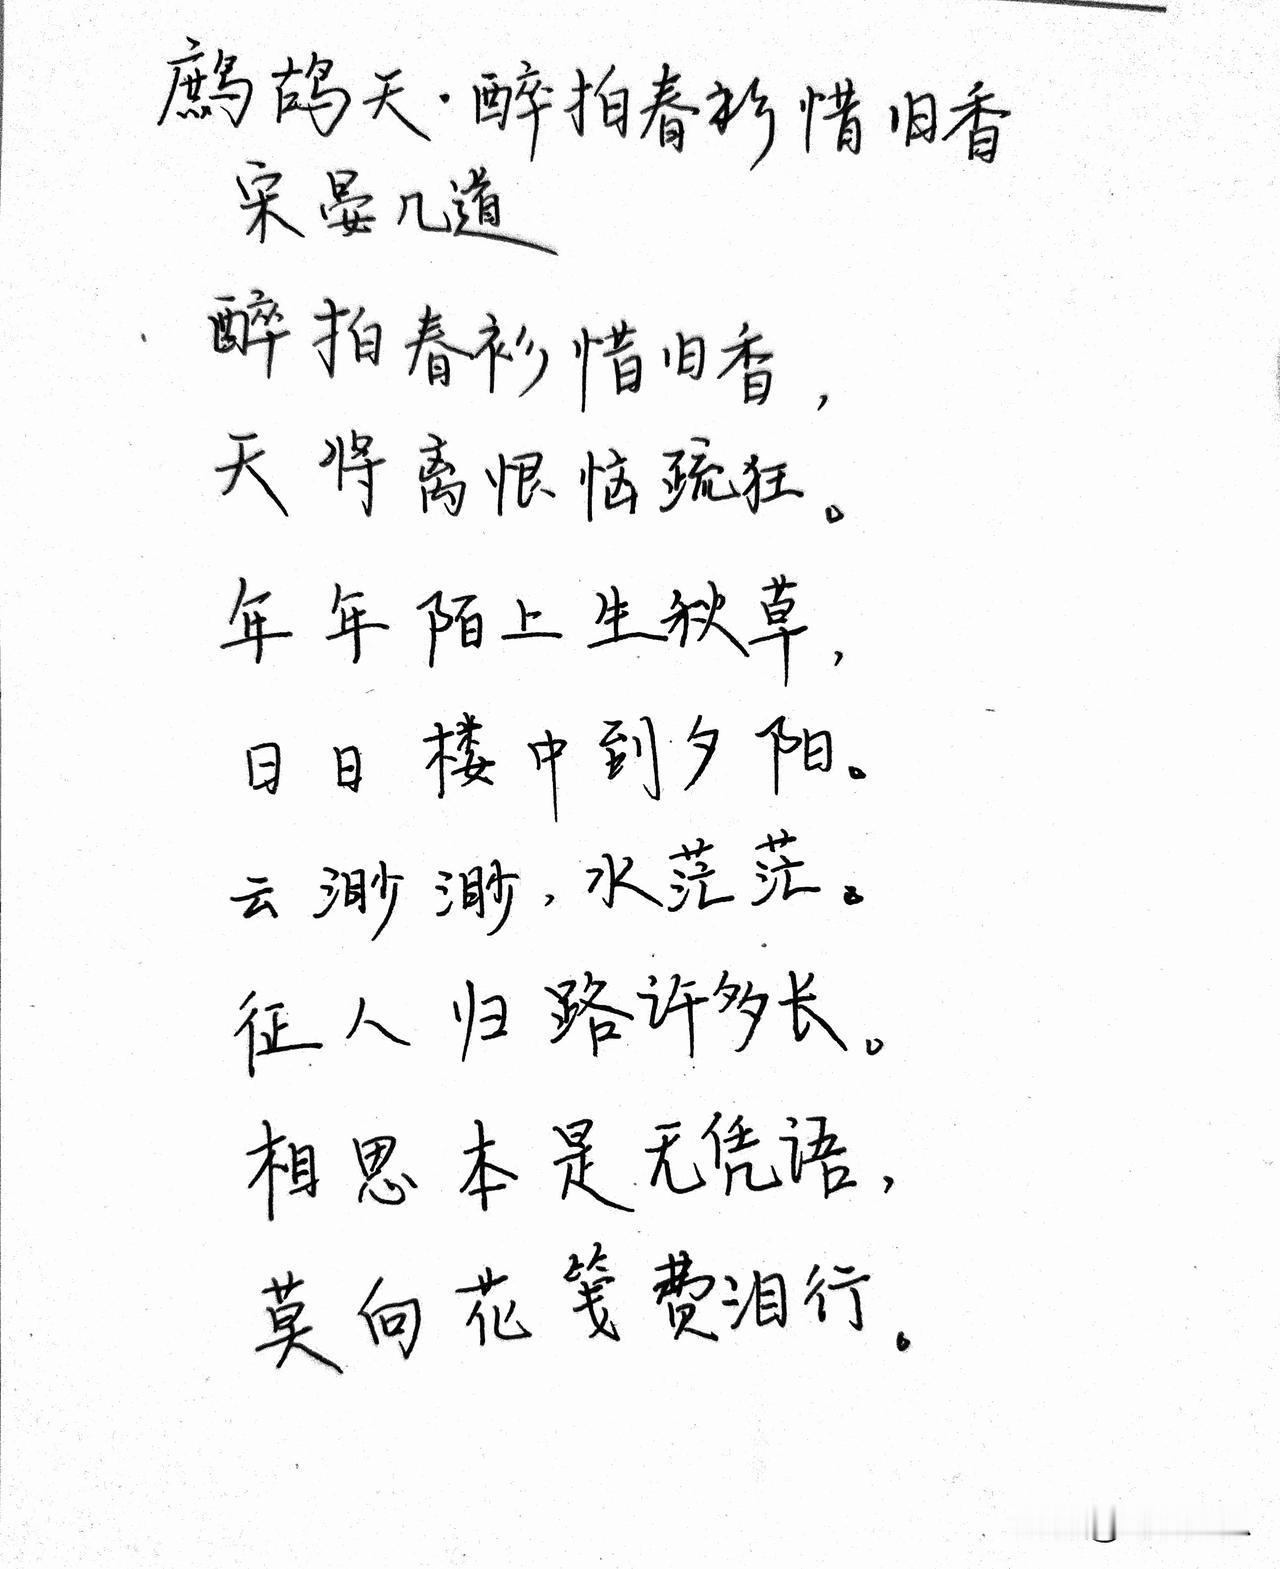 鹧鸪天·醉拍春衫惜旧香
宋晏几道
醉拍春衫惜旧香，
天将离恨恼疏狂。
年年陌上生秋草，
日日楼中到夕阳。
云渺渺，水茫茫。
征人归路许多长。
相思本是无凭语，
莫向花笺费泪行。